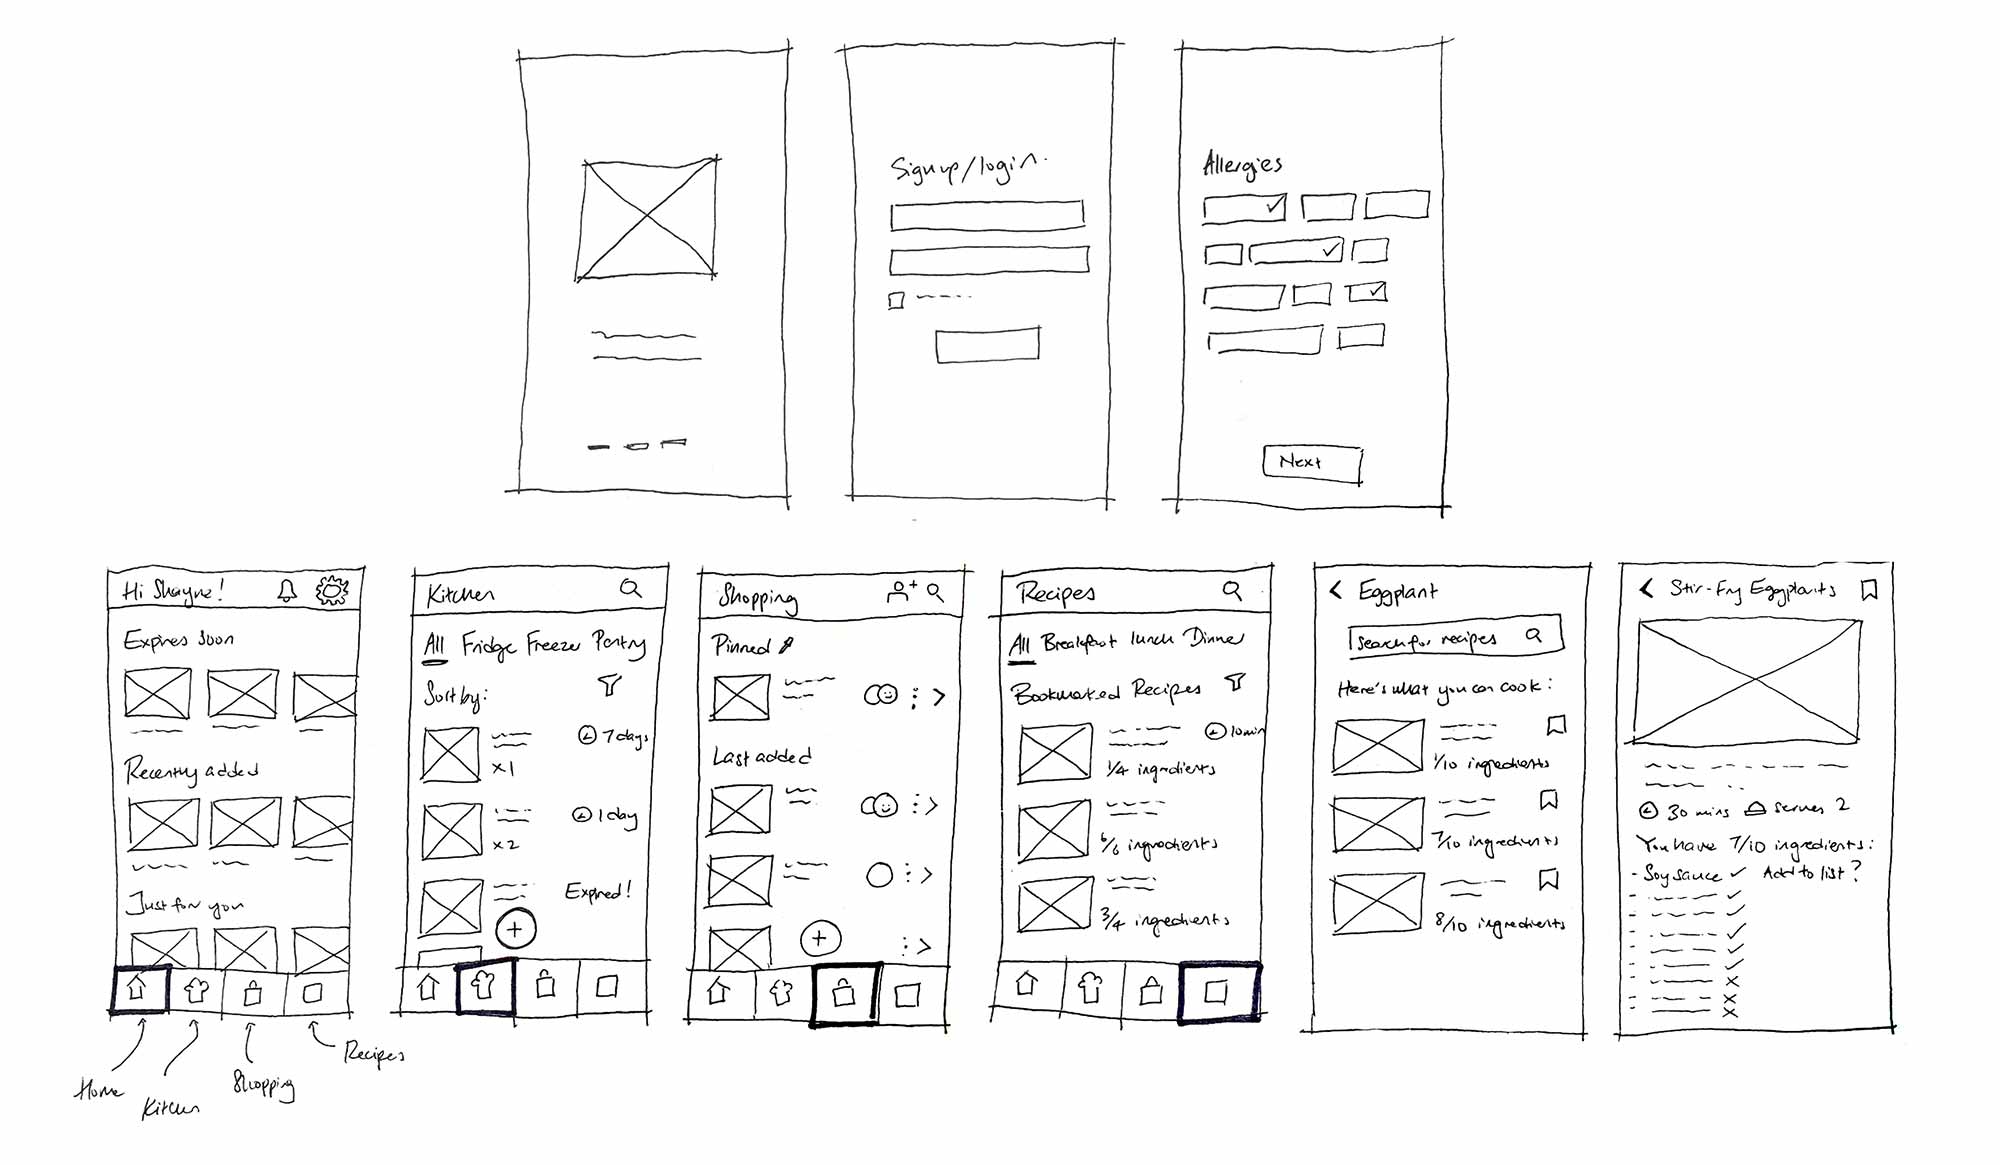 Signup/login.
Allergies
Next
Hi Shayne!
Expires soon
Recently added
Just for you
Home
Kitchen
Shopping
Recipes
Kitchen
All Fridge Freezer Pantry
Sort by:
7 days
x1
1 day
x2
Expired!
Shopping
Pinned
Last added
Recipes
All Breakfast lunch Dinner
Bookmarked Recipes
10min
1/4 ingredients
6/6 ingredients
3/4 ingredients
Eggplant
Search for recipes
Here's what you can cook:
1/10 ingredients
7/10 ingredients
8/10 ingredients
Stir-Fry Eggplants
30 mins serves 2
You have 7/10 ingredients:
- Soy sauce ✓ Add to list?